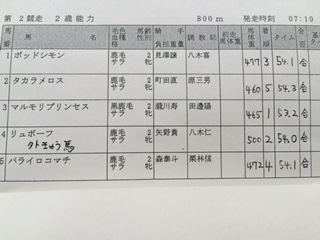 第 2競走 2歳能力 800m 発走時刻 07:10
馬番 馬名 毛色 血種格 馬齢 性別 騎手 負担重量 調教師 前走馬体重 馬体重 着順 タイム 合否
1 ポッドシモン 鹿毛 サラ 2 牝 見澤譲 八木喜 477 3 54.1 合
2 タカラメロス 鹿毛 サラ 2 牝 町田直 原三男 460 5 54.3 合
3 マルモリプリンセス 黒鹿毛 サラ 2 牝 瀧川寿 田邊陽 465 1 53.2 合
4 リュボーフ 鹿毛 サラ 2 牝 矢野貴 八木仁 500 2 54.0 合
5 バライロコマチ 鹿毛 サラ 2 牝 森泰斗 栗林信 472 4 54.1 合